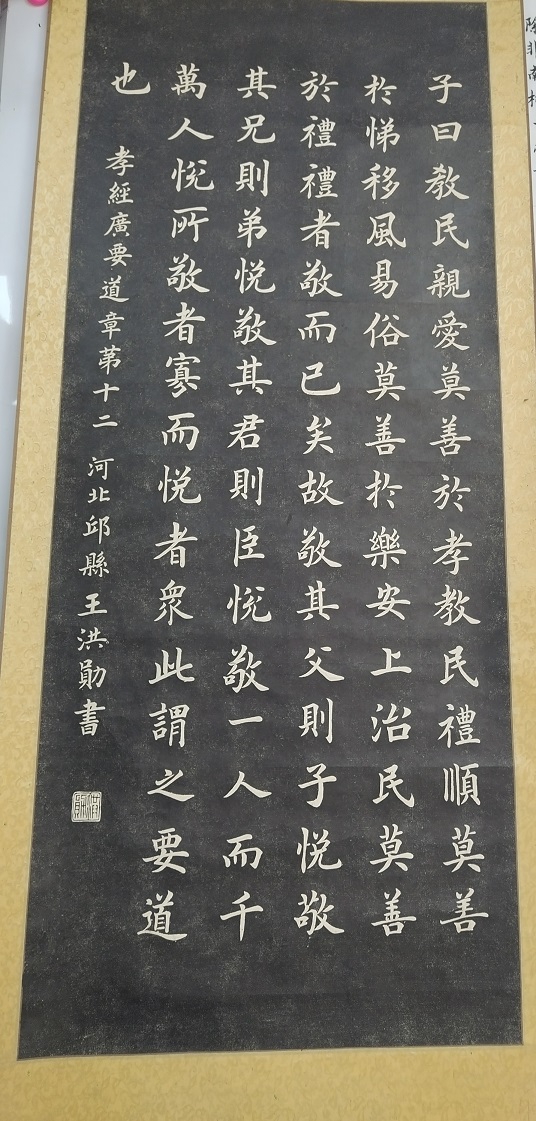 子曰教民親愛莫善於孝教民禮順莫善
扵悌移風易俗莫善扵樂安上治民莫善
於禮禮者敬而已矣故敬其父則子悦敬
其兄則弟悦敬其君則臣悦敬一人而千
萬人悦所敬者寡而悦者衆此謂之要道
也
孝經廣要道章苐十二 河北邱縣王洪勛書